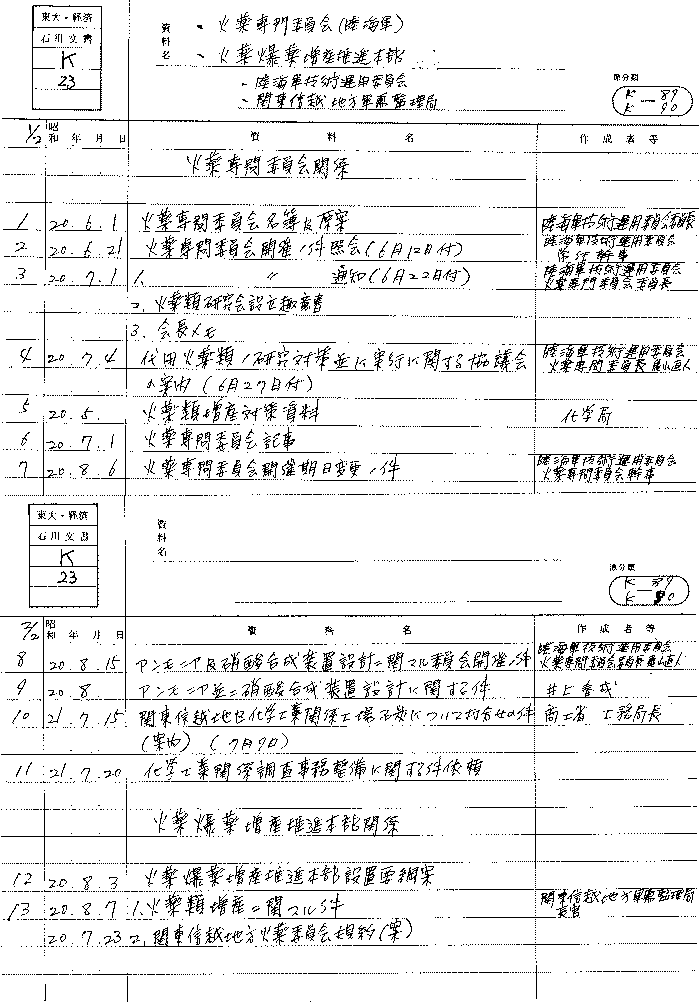 東大・経済
石川文書
K
23
資料名
・火薬専門委員会(陸海軍)
・火薬爆薬増産推進本部
・陸海軍技術運用委員会
・関東信越地方軍需監理局
原分類
K-89
K-90
1/2 昭和 年 月 日 資料名 作成者等
火薬専門委員会関係
1 20.6.1 火薬専門委員会名簿及席案 陸海軍技術運用委員会
2 20.6.21 火薬専門委員会開催ノ件照会(6月12日付) 陸海軍技術運用委員会
常任幹事
3 20.7.1 1. 〃 通知(6月22日付) 陸海軍技術運用委員会
火薬専門委員会委員長
2. 火薬類研究会設立趣意書
3. 会長メモ
4 20.7.4 代用火薬類ノ研究対策並に実行に関する協議会 陸海軍技術運用委員会
の案内(6月27日付) 火薬専門委員長
5 20.5. 火薬類増産対策資料 化学局
6 20.7.1 火薬専門委員会記事
7 20.8.6 火薬専門委員会開催期日変更ノ件 陸海軍技術運用委員会
火薬専門委員会幹事
東大・経済
石川文書
K
23
資料名
原分類
K-89
K-90
2/2 昭和 年 月 日 資料名 作成者等
8 20.8.15 アンモニア及硝酸合成装置設計ニ関スル委員会開催ノ件 陸海軍技術運用委員会
9 20.8 アンモニア並ニ硝酸合成装置設計に関する件 井上春成
10 21.7.15 関東信越地区化学工業関係工場 について打合せの件 商工省 工務局長
(案内)(7月9日)
11 21.7.20 化学工業関係調査事務整備に関する件依頼
火薬爆薬増産推進本部関係
12 20.8.3 火薬爆薬増産推進本部設置要綱案
13 20.8.7 1. 火薬類増産ニ関スル件 関東信越地方軍需監理局
長官
20.7.23 2. 関東信越地方火薬委員会規約(案)